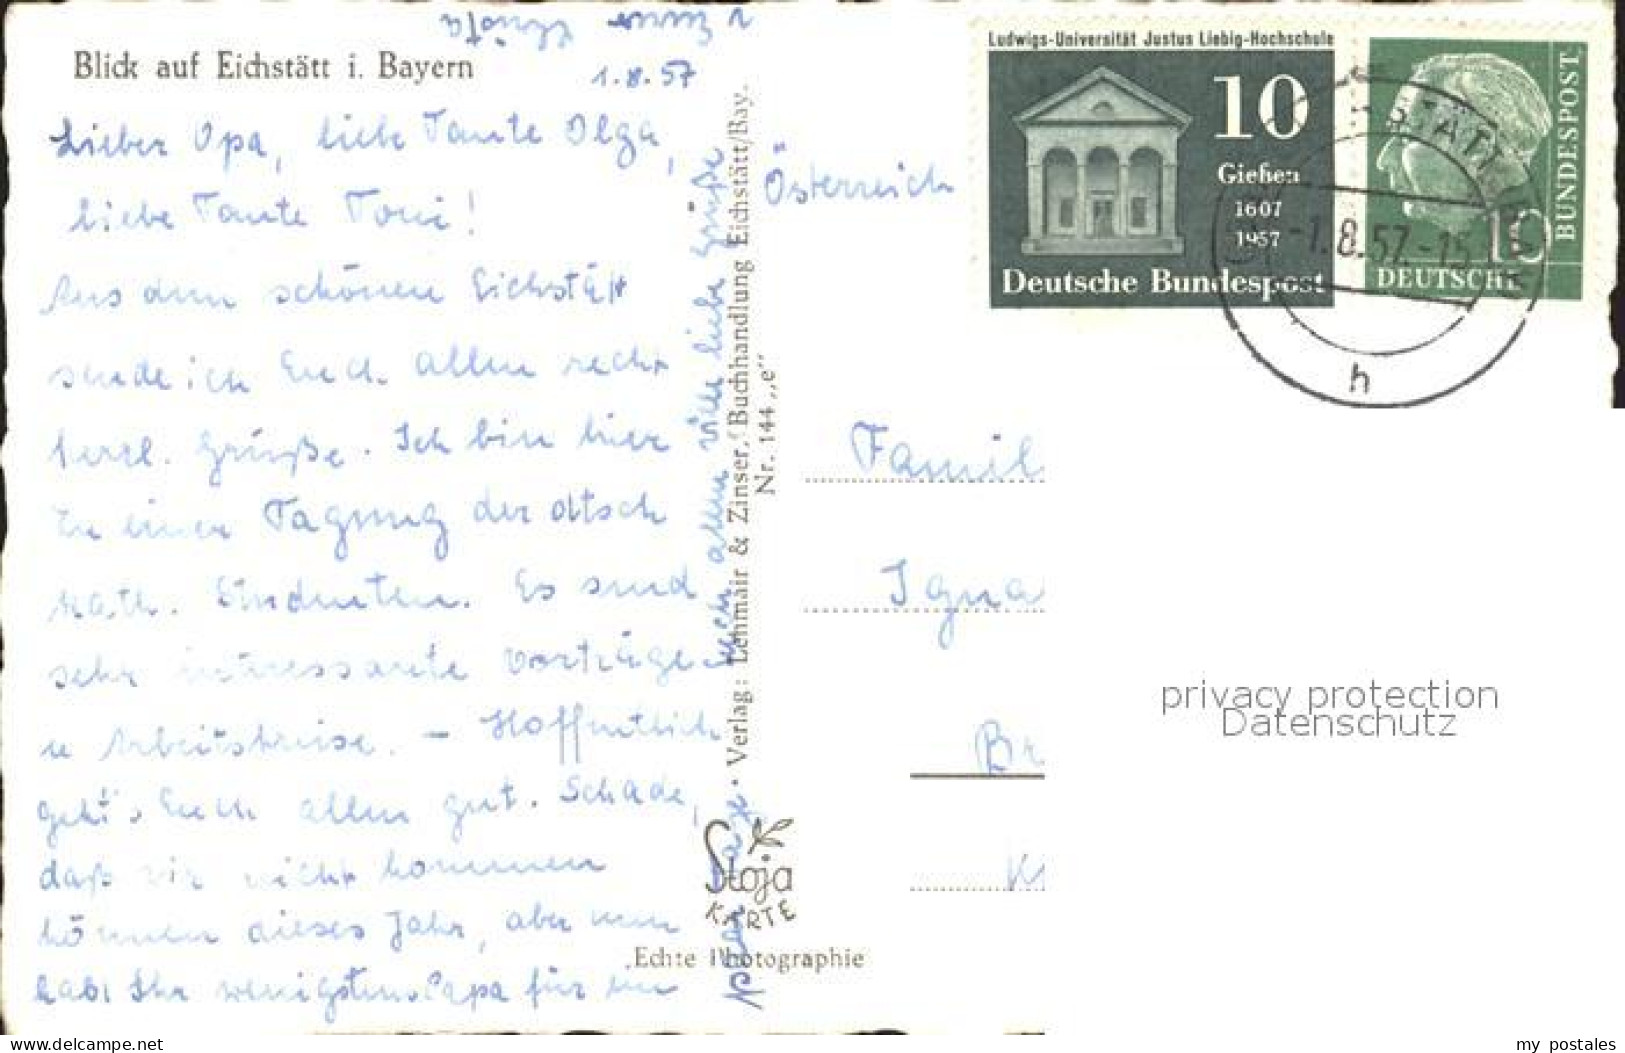 Blick auf Eichstätt i. Bayern
1.8.57
Lieber Opa, liebe Tante Olga,
liebe Tante Toni!
Aus dem schönen Eichstätt
sende ich Euch allen recht
herzl. Grüße. Ich bin hier
zu einer Tagung der dtsch
kath. Studenten. Es sind
sehr interessante Vorträge
u Arbeitskreise. – Hoffentlich
geht's Euch allen gut. Schade,
daß wir nicht kommen
können dieses Jahr, aber nun
habt Ihr wenigstens Papa für ein
Euch allen viele liebe Grüße
v Eurer Christa
Verlag: Lehmair & Zinser, Buchhandlung Eichstätt/Bay.
Nr. 144 „e"
Stoja
KARTE
Echte Photographie
Österreich
Ludwigs-Universität Justus Liebig-Hochschule
10
Gießen
1607
1957
Deutsche Bundespost
10
DEUTSCHE
BUNDESPOST
-1.8.57.-15
h
Famil
Igna
Br
K
privacy protection
Datenschutz
www.delcampe.net
my_postales